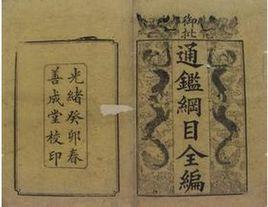 御批
通鑑綱目全編
光緒癸卯春
善成堂校印